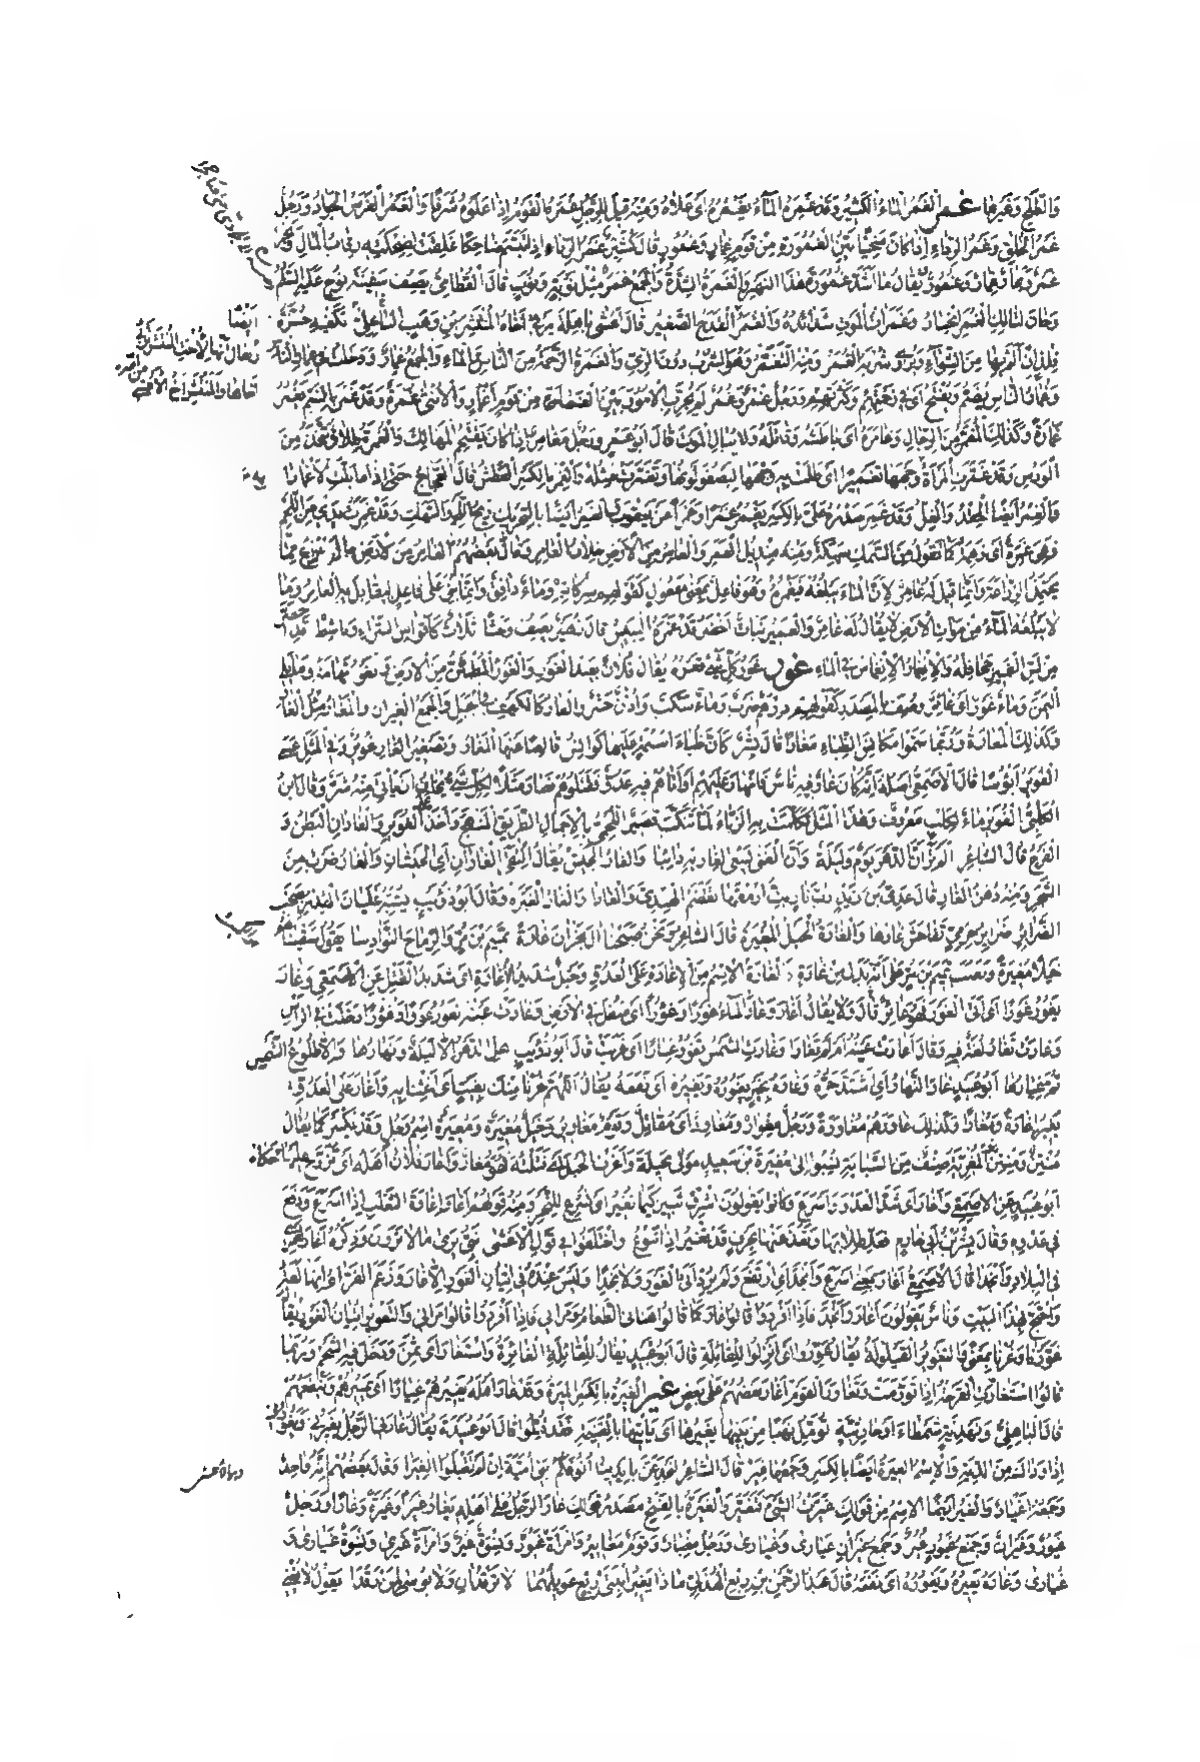 وَالفَلَحِ وَغَيرِهَا غمر الغَمْرُ المَاءُ الكَثِيرُ وَقَدْ غَمَرَهُ المَاءُ يَغْمُرُهُ اَى عَلَاهُ وَمِنْهُ قِيلَ لِلرَّجُلِ غَمَرَهُ القَوْمُ اِذَا عَلَوْهُ شَرَفًا وَالْغَمْرُ الفَرَسُ الْجَوَادُ وَرَجُلٌ
غَمْرُ الْخُلُقِ وَغَمْرُ الرِّدَاءِ اِذَا كَانَ سَخِيًّا بَيِّنُ الغُمُورَةِ مِنْ قَوْمٍ غِمَارٍ وَغُمُورٍ قَالَ كُثَيِّرٌ غَمْرُ الرِّدَاءِ اِذَا تَبَسَّمَ ضَاحِكًا غَلِقَتْ لِضَحْكَتِهِ رِقَابُ الْمَالِ وَ
غَمْرٌ وَغِمَارٌ وَغُمُورٌ يُقَالُ مَا اَشَدَّ غُمُورَةَ هَذَا النَّهَرِ وَالْغَمْرَةُ الشِّدَّةُ وَالْجَمْعُ غُمَرٌ مِثْلُ نَوْبَةٍ وَنُوَبٍ قَالَ الْقُطَامِىُّ يَصِفُ سَفِينَةَ نُوحٍ عَلَيهِ السَّلَمُ
وَحَانَ لِتَالِكَ الْغُمَرِ انْحِسَارُ وَغَمَرَاتُ الْمَوْتِ شَدَائِدُهُ وَالْغُمَرُ القَدَحُ الصَّغِيرُ قَالَ اَعْشَى بَاهِلَةَ يَرْثِى اَخَاهُ الْمُنْتَشِرَ بْنَ وَهْبٍ البَاهِلِىَّ تَكْفِيهِ حُزَّةُ
فِلْذٍ اِنْ اَلَمَّ بِهَا مِنَ الشِّوَاءِ وَيُرْوِى شُرْبَهُ الْغُمَرُ وَمِنْهُ التَّغَمُّرُ وَهُوَ الشُّرْبُ دُونَ الرِّىِّ وَالْغَمْرَةُ الزَّحْمَةُ مِنَ النَّاسِ وَالْمَاءِ وَالْجَمْعُ غِمَارٌ وَدَخَلْتُ فِى
وَكَذَلِكَ الْمُغَمَّرُ مِنَ الرِّجَالِ وَغَامَرَهُ اَى بَاطَشَهُ وَقَاتَلَهُ وَلَمْ يُبَالِ الْمَوْتَ قَالَ اَبُو عَمْرٍو رَجُلٌ مُغَامِرٌ اِذَا كَانَ يَقْتَحِمُ الْمَهَالِكَ وَالْغُمْرَةُ طِلَاءٌ يُتَّخَذُ مِنَ
الْوَرْسِ وَقَدْ غَمَّرَتِ الْمَرْأَةُ وَجْهَهَا تَغْمِيرًا اَى طَلَتْ بِهِ وَجْهَهَا لِيَصْفُوَ لَوْنُهَا وَتَغَمَّرَتْ مِثْلُهُ وَالْغِمْرُ بِالكَسْرِ الْعَطَشُ قَالَ الْعَجَّاجُ حَتَّى اِذَا مَا بَلَّتِ الْاَغْمَارَا
وَالْغِمْرُ اَيْضًا الْحِقْدُ وَالْغِلُّ وَقَدْ غَمِرَ صَدْرُهُ عَلَىَّ بِالْكَسْرِ يَغْمَرُ
لَا يَبْلُغُهُ الْمَاءُ مِنْ مَوَاتِ الْاَرْضِ لَا يُقَالُ لَهُ غَامِرٌ وَالْغَمِيرُ نَبَاتٌ اَخْضَرُ قَدْ غَمَرَهُ الْيَبِيسُ قَالَ زُهَيرٌ يَصِفُ وَحْشًا ثَلَاثٌ كَاَقْوَاسِ السَّرَاءِ وَنَاشِطٌ قَدِ اخْضَرَّ
مِنْ لَسِّ الْغَمِيرِ جَحَافِلُهُ وَالْاِنْغِمَارُ الْاِنْغِمَاسُ فِى الْمَاءِ غور غَوْرُ كُلِّ شَىْءٍ قَعْرُهُ يُقَالُ فُلَانٌ بَعِيدُ الْغَوْرِ وَالْغَوْرُ الْمُطْمَئِنُّ مِنَ الْاَرْضِ وَالغَوْرُ تِهَامَةُ وَمَا يَلِى
الْيَمَنَ وَمَاءٌ غَوْرٌ اَى غَائِرٌ وُصِفَ بِالْمَصْدَرِ كَقَوْلِهِمْ دِرْهَمٌ ضَرْبٌ وَمَاءٌ سَكْبٌ وَاُذُنٌ حَشْرٌ وَالغَارُ كَالْكَهْفِ فِى الْجَبَلِ وَالْجَمْعُ الْغِيرَانُ وَالْمَغَارُ مِثْلُ الْغَارِ
وَكَذَلِكَ الْمَغَارَةُ وَرُبَّمَا سَمَّوْا مَكَانِسَ الظِّبَاءِ مَغَارًا قَالَ بِشْرٌ كَاَنَّ ظِبَاءَ اَسْنُمَةٍ عَلَيهَا كَوَانِسُ قَالِصًا عَنْهَا الْمَغَارُ وَتَصْغِيرُ الْغَارِ غُوَيرٌ وَفِى الْمَثَلِ عَسَى
الْغُوَيرُ اَبْؤُسًا قَالَ الْاَصْمَعِىُّ اَصْلُهُ اَنَّهُ كَانَ غَارٌ فِيهِ نَاسٌ فَانْهَارَ عَلَيهِمْ اَوْ اَتَاهُمْ فِيهِ عَدُوٌّ فَقَتَلُوهُمْ فَصَارَ مَثَلًا لِكُلِّ شَىْءٍ يُخَافُ اَنْ يَأتِىَ مِنْهُ شَرٌّ وَقَالَ ابْنُ
الْكَلْبِىِّ الْغُوَيرُ مَاءٌ لِكَلْبٍ مَعْرُوفٌ وَهَذَا الْمَثَلُ تَكَلَّمَتْ بِهِ الزَّبَّاءُ لَمَّا تَنَكَّبَ قَصِيرٌ اللَّخْمِىُّ بِالْاَجْمَالِ الطَّرِيقَ الْمَنْهَجَ وَاَخَذَ عَلَى الْغُوَيرِ وَالْغَارَانِ الْبَطْنُ وَ
الْفَرْجُ قَالَ الشَّاعِرُ اَلَمْ تَرَ اَنَّ الدَّهْرَ يَوْمٌ وَلَيلَةٌ وَاَنَّ الْفَتَى يَسْعَى لِغَارَيهِ دَائِبًا وَالْغَارُ الْجَيشُ يُقَالُ الْتَقَى الْغَارَانِ اَىِ الْجَيشَانِ وَالْغَارُ ضَرْبٌ مِنَ
الشَّجَرِ وَمِنْهُ دُهْنُ الْغَارِ قَالَ عَدِىُّ بْنُ زَيدٍ رُبَّ نَارٍ بِتُّ اَرْمُقُهَا تَقْضَمُ الْهِنْدِىَّ وَالْغَارَا وَالغَارُ الْغَيرَةُ وَقَالَ اَبُو ذُؤَيبٍ يُشَبِّهُ غَلَيَانَ الْقِدْرِ بِصَخَبِ
الضَّرَائِرِ ضَرَائِرُ حِرْمِىٍّ تَفَاحَشَ غَارُهَا وَالْغَارَةُ الْخَيلُ الْمُغِيرَةُ قَالَ الشَّاعِرُ وَنَحْنُ صَبَحْنَا اٰلَ نَجْرَانَ غَارَةً تَمِيمَ بْنَ مُرٍّ وَالرِّمَاحَ النَّوَادِسَا يَقُولُ سَقَينَاهُمْ
خَيلًا مُغِيرَةً وَنَصَبَ تَمِيمَ بْنَ مُرٍّ عَلَى اَنَّهُ بَدَلٌ مِنْ غَارَةٍ وَالْغَارَةُ الْاِسْمُ مِنَ الْاِغَارَةِ عَلَى الْعَدُوِّ وَحَبْلٌ شَدِيدُ الْاِغَارَةِ اَى شَدِيدُ الْفَتْلِ عَنِ الْاَصْمَعِىِّ وَغَارَ
يَغُورُ غَوْرًا اَى اَتَى الْغَوْرَ فَهُوَ غَائِرٌ قَالَ وَلَا يُقَالُ اَغَارَ وَغَارَ الْمَاءُ غَوْرًا وَغُؤُورًا اَى سَفُلَ فِى الْاَرْضِ وَغَارَتْ عَينُهُ تَغُورُ غَوْرًا وَغُؤُورًا دَخَلَتْ فِى الرَّأسِ
وَغَارَتْ تَغَارُ لُغَةٌ فِيهِ وَقَالَ اَغَارَتْ عَينُهُ اَمْ لَمْ تَغَارَا وَغَارَتِ الشَّمْسُ تَغُورُ غِيَارًا اَى غَرَبَتْ قَالَ اَبُو ذُؤَيبٍ هَلِ الدَّهْرُ اِلَّا لَيلَةٌ وَنَهَارُهَا وَاِلَّا طُلُوعُ الشَّمْسِ
ثُمَّ غِيَارُهَا اَبُو عُبَيدٍ غَارَ النَّهَارُ اَىِ اشْتَدَّ حَرُّهُ وَغَارَهُ بِخَيرٍ يَغُورُهُ وَيَغِيرُهُ اَى نَفَعَهُ يُقَالُ اَللَّهُمَّ غُرْنَا مِنْكَ بِغَيثٍ اَى اَغِثْنَا بِهِ وَاَغَارَ عَلَى الْعَدُوِّ
يُغِيرُ اِغَارَةً وَمُغَارًا وَكَذَلِكَ غَاوَرَهُمْ مُغَاوَرَةً وَرَجُلٌ مِغْوَارٌ وَمُغَاوِرٌ اَى مُقَاتِلٌ وَقَوْمٌ مَغَاوِيرُ وَخَيلٌ مُغِيرَةٌ وَمُغِيرَةُ اِسْمُ رَجُلٍ وَقَدْ تُكْسَرُ كَمَا يُقَالُ
مُنْتِنٌ وَمِنْتِنٌ وَالْمُغِيرِيَّةُ صِنْفٌ مِنَ السَّبَائِيَّةِ نُسِبُوا اِلَى مُغِيرَةَ بْنِ سَعِيدٍ مَوْلَى بَجِيلَةَ وَاَغَرْتُ الْحَبْلَ اَى فَتَلْتُهُ فَهُوَ مُغَارٌ وَاَغَارَ فُلَانٌ اَهْلَهُ اَى تَزَوَّجَ عَلَيهَا حَكَاهُ
اَبُو عُبَيدٍ عَنِ الْاَصْمَعِىِّ وَاَغَارَ اَى شَدَّ الْعَدْوَ وَاَسْرَعَ وَكَانُوا يَقُولُونَ اَشْرِقْ ثَبِيرُ كَيمَا نُغِيرُ اَى نُسْرِعَ لِلنَّحْرِ وَمِنْهُ قَوْلُهُمْ اَغَارَ اِغَارَةَ الثَّعْلَبِ اِذَا اَسْرَعَ وَدَفَعَ
فِى عَدْوِهِ وَقَالَ بِشْرُ بْنُ اَبِى خَازِمٍ فَعَدِّ طِلَابَهَا وَتَعَدَّ عَنْهَا بِحَرْفٍ قَدْ تُغِيرُ اِذَا تَبُوعُ وَاخْتَلَفُوا فِى قَوْلِ الْاَعْشَى نَبِىٌّ يَرَى مَا لَا تَرَوْنَ وَذِكْرُهُ اَغَارَ لَعَمْرِى
فِى الْبِلَادِ وَاَنْجَدَا قَالَ الْاَصْمَعِىُّ اَغَارَ بِمَعْنَى اَسْرَعَ وَاَنْجَدَ اَىِ ارْتَفَعَ وَلَمْ يُرِدْ اَتَى الْغَوْرَ وَلَا نَجْدًا وَلَيسَ عِنْدَهُ فِى اِتْيَانِ الْغَوْرِ اِلَّا غَارَ وَزَعَمَ الْفَرَّاءُ اَنَّهَا لُغَةٌ
وَاحْتَجَّ بِهَذَا الْبَيتِ وَنَاسٌ يَقُولُونَ اَغَارَ وَاَنْجَدَ فَاِذَا اَفْرَدُوا قَالُوا غَارَ كَمَا قَالُوا هَنَأَنِى الطَّعَامُ وَمَرَأَنِى فَاِذَا اَفْرَدُوا قَالُوا اَمْرَأَنِى وَالتَّغْوِيرُ اِتْيَانُ الْغَوْرِ يُقَالُ
غَوَّرْنَا وَغُرْنَا بِمَعْنًى وَالتَّغْوِيرُ الْقَيلُولَةُ يُقَالُ غَوِّرُوا اَىِ انْزِلُوا لِلْقَائِلَةِ قَالَ اَبُو عُبَيدٍ يُقَالُ لِلْقَائِلَةِ الْغَائِرَةُ وَاسْتَغَارَ اَى سَمِنَ وَدَخَلَ فِيهِ الشَّحْمُ وَرُبَّمَا
قَالُوا اسْتَغَارَتِ الْقَرْحَةُ اِذَا تَوَرَّمَتْ وَتَغَاوَرَ الْقَوْمُ اَغَارَ بَعْضُهُمْ عَلَى بَعْضٍ غير الْغِيرَةُ بِالْكَسْرِ الْمِيرَةُ وَقَدْ غَارَ اَهْلَهُ يَغِيرُهُمْ غِيَارًا اَى يَمِيرُهُمْ وَيَنْفَعُهُمْ
قَالَ الْبَاهِلِىُّ وَنَهْدِيَّةٍ شَمْطَاءَ اَوْ حَارِثِيَّةٍ تُؤَمِّلُ نَهْبًا مِنْ بَنِيهَا يَغِيرُهَا اَى يَأتِيهَا بِالْغَنِيمَةِ فَقَدْ قُتِلُوا قَالَ اَبُو عُبَيدَةَ يُقَالُ غَارَنِى الرَّجُلُ يَغِيرُنِى وَيَغُورُنِى
اِذَا وَدَاكَ مِنَ الدِّيَةِ وَالْاِسْمُ الْغِيرَةُ اَيْضًا بِالْكَسْرِ وَجَمْعُهَا غِيَرٌ قَالَ الشَّاعِرُ لَنَجْدَعَنَّ بِاَيدِينَا اُنُوفَكُمُ بَنِى اُمَيمَةَ اِنْ لَمْ تَقْبَلُوا الْغِيَرَا وَقَالَ بَعْضُهُمْ اِنَّهُ وَاحِدٌ
وَجَمْعُهُ اَغْيَارٌ وَالْغِيَرُ اَيْضًا الْاِسْمُ مِنْ قَوْلِكَ غَيَّرْتُ الشَّىْءَ فَتَغَيَّرَ وَالْغَيرَةُ بِالْفَتْحِ مَصْدَرُ قَوْلِكَ غَارَ الرَّجُلُ عَلَى اَهْلِهِ يَغَارُ غَيرًا وَغَيرَةً وَغَارًا وَرَجُلٌ
غَيُورٌ وَغَيرَانُ وَجَمْعُ غَيُورٍ غُيُرٌ وَجَمْعُ غَيرَانَ غَيَارَى وَغُيَارَى وَرَجُلٌ مِغْيَارٌ وَقَوْمٌ مَغَايِيرُ وَامْرَأَةٌ غَيُورٌ وَنِسْوَةٌ غُيُرٌ وَامْرَأَةٌ غَيرَى وَنِسْوَةٌ غَيَارَى وَ
غُيَارَى وَغَارَهُ يَغِيرُهُ وَيَغُورُهُ اَى نَفَعَهُ قَالَ عَبْدُ الرَّحْمَنِ بْنُ رِبْعٍ الْهُذَلِىُّ مَاذَا يَغِيرُ ابْنَتَىْ رِبْعٍ عَوِيلُهُمَا لَا تَرْقُدَانِ وَلَا بُؤْسَى لِمَنْ رَقَدَا يَقُولُ لَا يُغْنِى